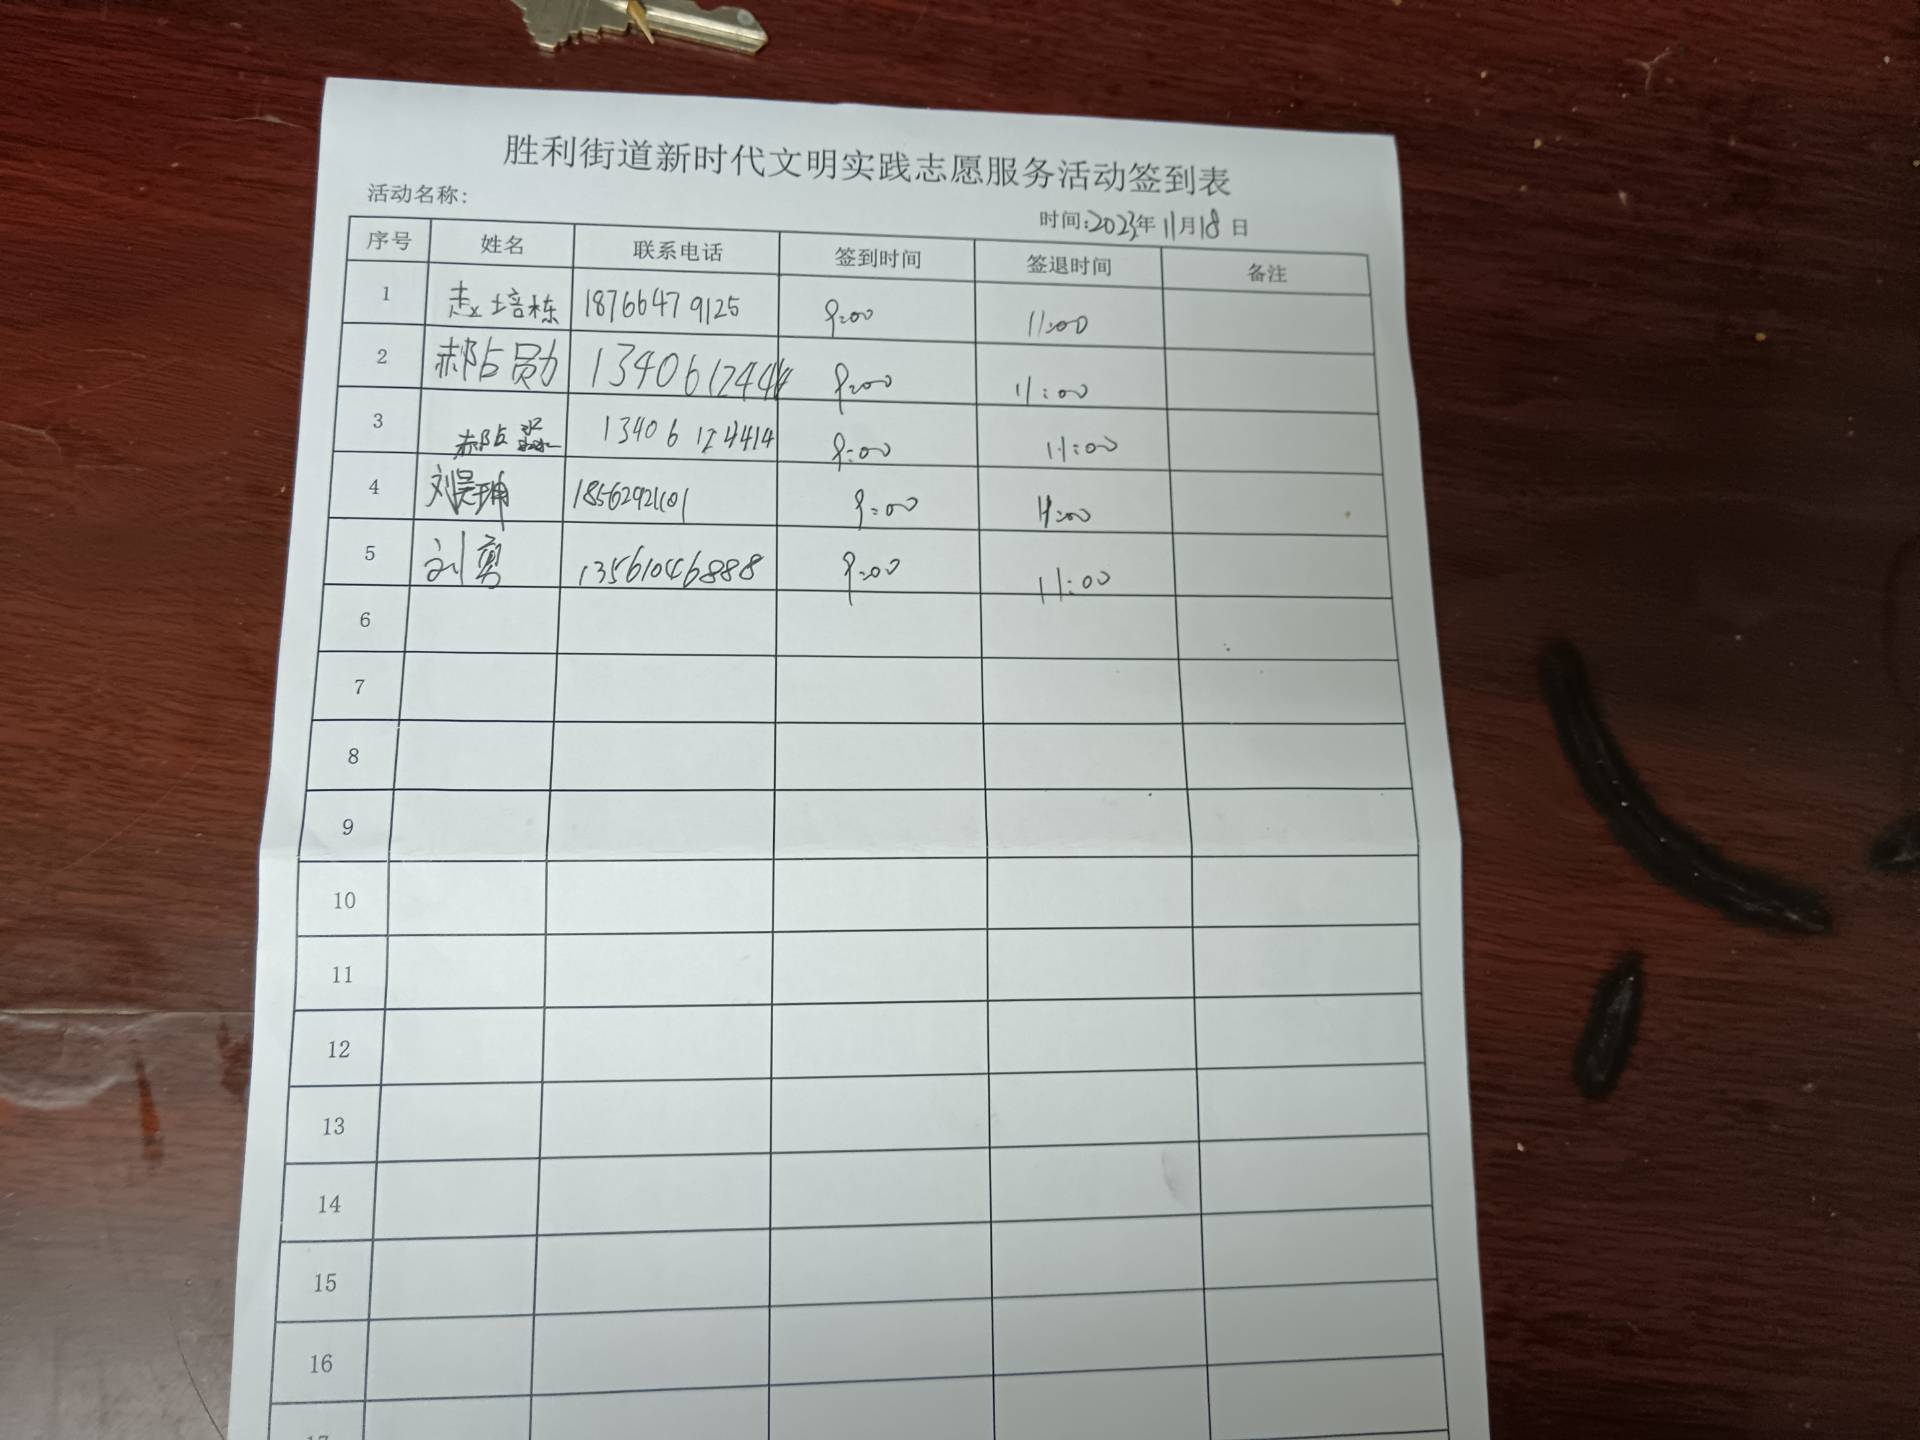 胜利街道新时代文明实践志愿服务活动签到表
活动名称:
时间:2023年11月18日
序号 姓名 联系电话 签到时间 签退时间 备注
1 赵培栋 18766479125 9:00 11:00
2 郝占勋 13406124414 9:00 11:00
3 郝占淼 13406124414 9:00 11:00
4 刘昊珃 18562921101 9:00 11:00
5 刘勇 13561046888 9:00 11:00
6
7
8
9
10
11
12
13
14
15
16
17